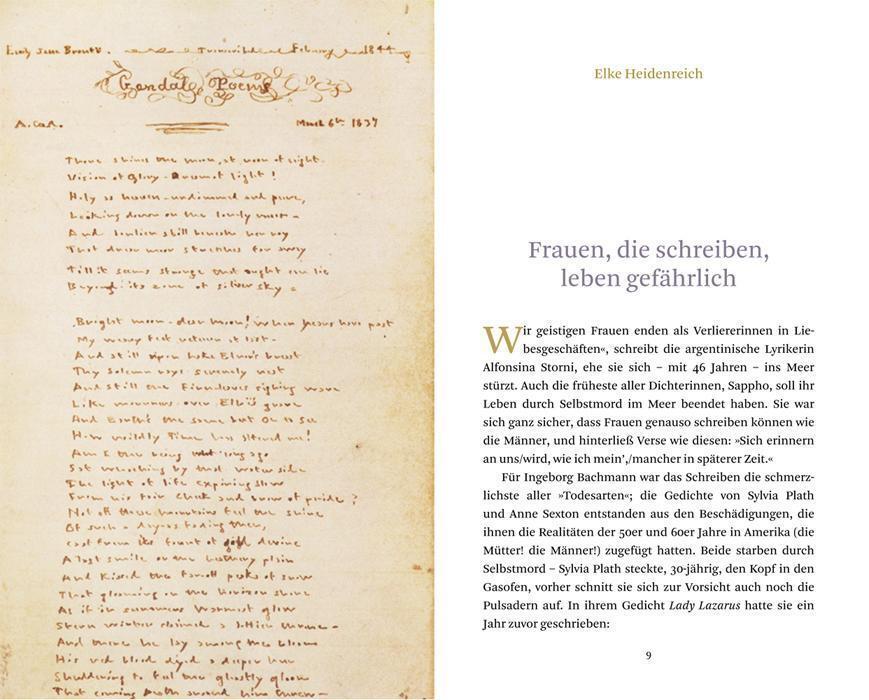 Emily Jane Brontë. Transcribed Febuary 1844
Gondal Poems
A.G.A. March 6th 1837
There shines the moon, at noon of night.
Vision of Glory - Dream of light!
Holy as heaven - undimmed and pure,
Looking down on the lonely moor -
And lonlier still beneath her ray
That drear moor stretches far away
Till it seems strange that aught can lie
Beyond its zone of silver sky -
Bright moon - dear moon! when years have past
My weary feet return at last -
And still upon Lake Elnor's breast
Thy solemn rays serenely rest
And still the Fernleaves sighing wave
Like mourners over Elbë's grave
And Earth's the same but Oh to see
How wildly Time has altered me!
Am I the being who long ago
Sat watching by that water side
The light of life expiring slow
From his fair cheek and brow of pride?
Not oft these mountains feel the shine
Of such a day as fading then,
Cast from its fount of gold divine
A last smile on the heathery plain
And kissed the far-off peaks of snow
That gleaming on the horizon shone
As if in summers warmest glow
Stern winter claimed a loftier throne -
And there he lay among the bloom
His red blood dyed a deeper hue
Shuddering to feel the ghostly gloom
That coming Death around him threw -
Elke Heidenreich
Frauen, die schreiben,
leben gefährlich
Wir geistigen Frauen enden als Verliererinnen in Lie-
besgeschäften«, schreibt die argentinische Lyrikerin
Alfonsina Storni, ehe sie sich – mit 46 Jahren – ins Meer
stürzt. Auch die früheste aller Dichterinnen, Sappho, soll ihr
Leben durch Selbstmord im Meer beendet haben. Sie war
sich ganz sicher, dass Frauen genauso schreiben können wie
die Männer, und hinterließ Verse wie diesen: »Sich erinnern
an uns/wird, wie ich mein’,/mancher in späterer Zeit.«
Für Ingeborg Bachmann war das Schreiben die schmerz-
lichste aller »Todesarten«; die Gedichte von Sylvia Plath
und Anne Sexton entstanden aus den Beschädigungen, die
ihnen die Realitäten der 50er und 60er Jahre in Amerika (die
Mütter! die Männer!) zugefügt hatten. Beide starben durch
Selbstmord – Sylvia Plath steckte, 30-jährig, den Kopf in den
Gasofen, vorher schnitt sie sich zur Vorsicht auch noch die
Pulsadern auf. In ihrem Gedicht Lady Lazarus hatte sie ein
Jahr zuvor geschrieben:
9